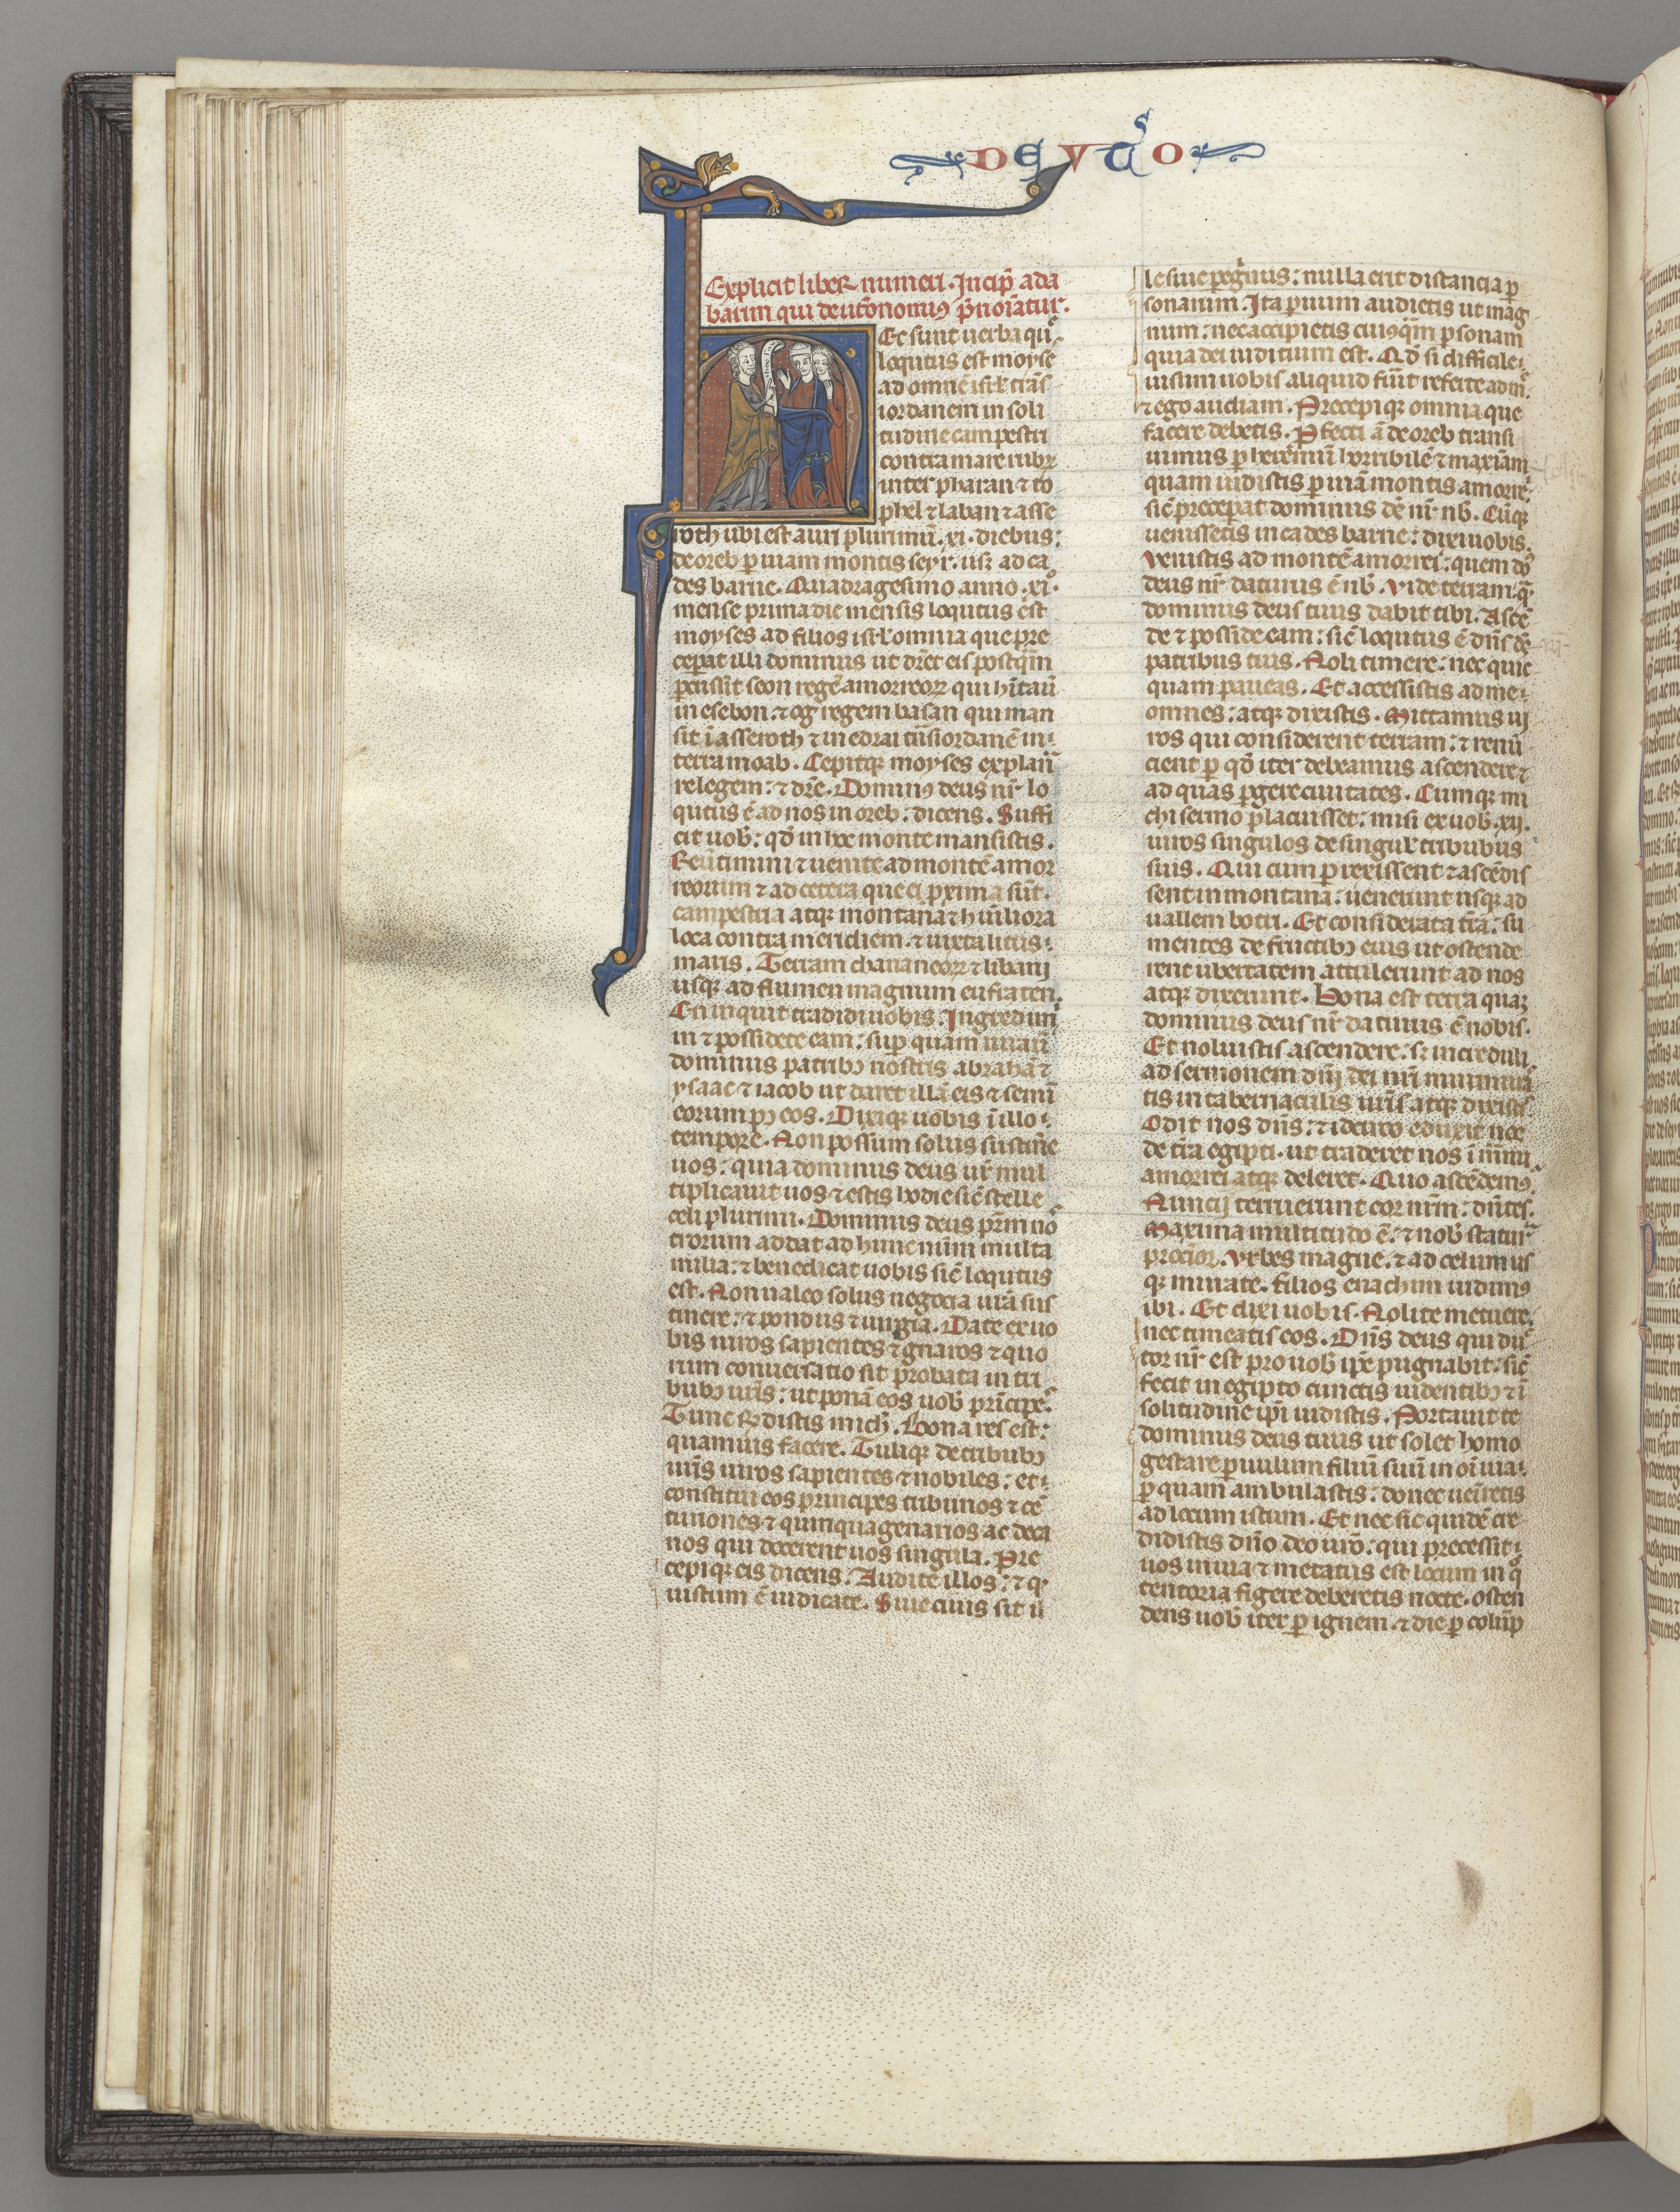 DEUTºO
Explicit liber numeri. Incip̄ ada
barim qui deut̄onomiꝰ p̄noīatur.
Ec sunt uerba qu̅
loqutus est moyse
ad omnē isrl̄ trās
iordanem in soli
tudine campestri
contra mare rubꝝ
inter pharan ⁊ to
phel ⁊ laban ⁊ asse
roth ubi est auri plurimū. xi. diebus:
de oreb ꝑ uiam montis seyr. usqꝫ ad ca
des barne. Quadragesimo anno .xi°.
mense prima die mensis loqutus est
moyses ad filios isrl̄ omnia que pre
ceperat illi dominus ut dr̄et eis postq̄m
ꝑcussit seon regē amorreoꝝ qui hītau̅
in esebon: ⁊ og regem basan qui man
sit ī asseroth ⁊ in edrai trāsiordanē in
terra moab. Cepitqꝫ moyses explan̄
re legem: ⁊ dr̄e. Dominꝰ deus nr̄ lo
qutus ē ad nos in oreb: dicens. Suffi
cit uob̄: qd̄ in hoc monte mansistis.
Reūtimini ⁊ uenite ad montē amor
reorum ⁊ ad cetera que ei ꝓxima sūt.
campestria atqꝫ montana ⁊ hūiliora
loca contra meridiem. ⁊ iuxta litus
maris. Terram chananeoꝝ ⁊ libani
usqꝫ ad flumen magnum eufraten.
En inquit tradidi uobis. Ingredim̄
in ⁊ possidete eam: suꝑ quam iurau̅
dominus patribꝰ nostris abrahā ⁊
ysaac ⁊ iacob ut daret illā eis ⁊ semī
eorum pꝰ eos. Dixiqꝫ uobis ī illo
tempore. Non possum solus sustin̄e
uos: quia dominus deus ur̄ mul
tiplicauit uos ⁊ estis hodie sic̄ stelle
celi plurimi. Dominus deus pr̄m no
trorum addat ad hunc num̄ multa
milia: ⁊ benedicat uobis sic̄ loqutus
est. Non ualeo solus negotia ur̄a sus
tinere: ⁊ pondus ⁊ iurgia. Date ex uo
bis uiros sapientes ⁊ gnaros ⁊ quo
rum conuersatio sit probata in tri
bubꝰ ur̄is: ut ponā eos uob̄ prīcipe̅.
Tunc rn̄distis mich̄. Bona res est:
quam uis facere. Tuliqꝫ de tribubꝰ
ur̄is uiros sapientes ⁊ nobiles: et
constitui eos principes tribunos ⁊ cē
turiones ⁊ quinquagenarios ac deca
nos qui docerent uos singula. Pre
cepiqꝫ eis dicens. Audite illos: ⁊ q̇
iustum ē iudicate. Siue ciuis sit il
le siue peg̓nus: nulla erit distancia ꝑ
sonarum. Ita paruum audietis ut mag
num: nec accipietis cuiusq̄m ꝑsonam
quia dei iuditium est. Qd̄ si difficile
uisum uobis aliquid fūit referte ad m̄
⁊ ego audiam. Precepiqꝫ omnia que
facere debetis. Ꝓfecti ā de oreb transi
uimus ꝑ heremū horribilē ⁊ maxīam
quam uidistis ꝑ uiā montis amorre̅
sic̄ preceperat dominus dē nr̄ nb̄. Cūqꝫ
uenissetis in cades barne: dixi uobis.
Venistis ad montē amorrei: quem dō
deus nr̄ daturus ē nb̄. Vide terram q̄
dominus deus tuus dabit tibi. Ascē
de ⁊ posside eam: sic̄ loqutus ē dn̄s dē
patribus tuis. Noli timere: nec quic
quam paueas. Et accessistis ad me
omnes: atqꝫ dixistis. Mittamus ui
ros qui considerent terram: ⁊ renū
cient ꝑ qd̄ iter debeamus ascendere ⁊
ad quas ꝑgere ciuitates. Cumqꝫ mi
chi sermo placuisset: misi ex uob̄ .xij.
uiros singulos de singul̄ tribubus
suis. Qui cum ꝑrexissent ⁊ ascēdis
sent in montana: uenerunt usqꝫ ad
uallem botri. Et considerata tr̄a: su
mentes de fructibꝰ eius ut ostende
rent ubertatem attulerunt ad nos
atqꝫ dixerunt. Bona est terra quaꝫ
dominus deus nr̄ daturus ē nobis.
Et noluistis ascendere: sꝫ increduli
ad sermonem dn̄i dei nr̄i murmura
tis in tabernaculis ur̄is atqꝫ dixistis.
Odit nos dn̄s: ⁊ idcirco eduxit nos
de tr̄a egipti. ut traderet nos ī manu
amorrei atqꝫ deleret. Quo ascēdemꝰ.
Nuncij terruerunt cor nr̄m: dn̄tes.
Maxima multitudo ē: ⁊ nob̄ statur̄
procior. Vrbes magne: ⁊ ad celum us
qꝫ munite. filios enachim uidimꝰ
ibi. Et dixi uobis. Nolite metuere:
nec timeatis eos. Dn̄s deus qui du̅
tor nr̄ est pro uob̄ ip̄e pugnabit: sic̄
fecit in egipto cunctis uidentibꝰ ⁊ ī
solitudine ip̄i uidistis. Portauit te
dominus deus tuus ut solet homo
gestare paruulum filiū suū in oī uia
ꝑ quam ambulastis: donec uen̄retis
ad locum istum. Et nec sic quidē cre
didistis dn̄o deo ur̄o: qui precessit
uos in uia ⁊ metatus est locum in q̊
tentoria figere deberetis nocte. osten
dens uob̄ iter ꝑ ignem ⁊ die ꝑ colūp